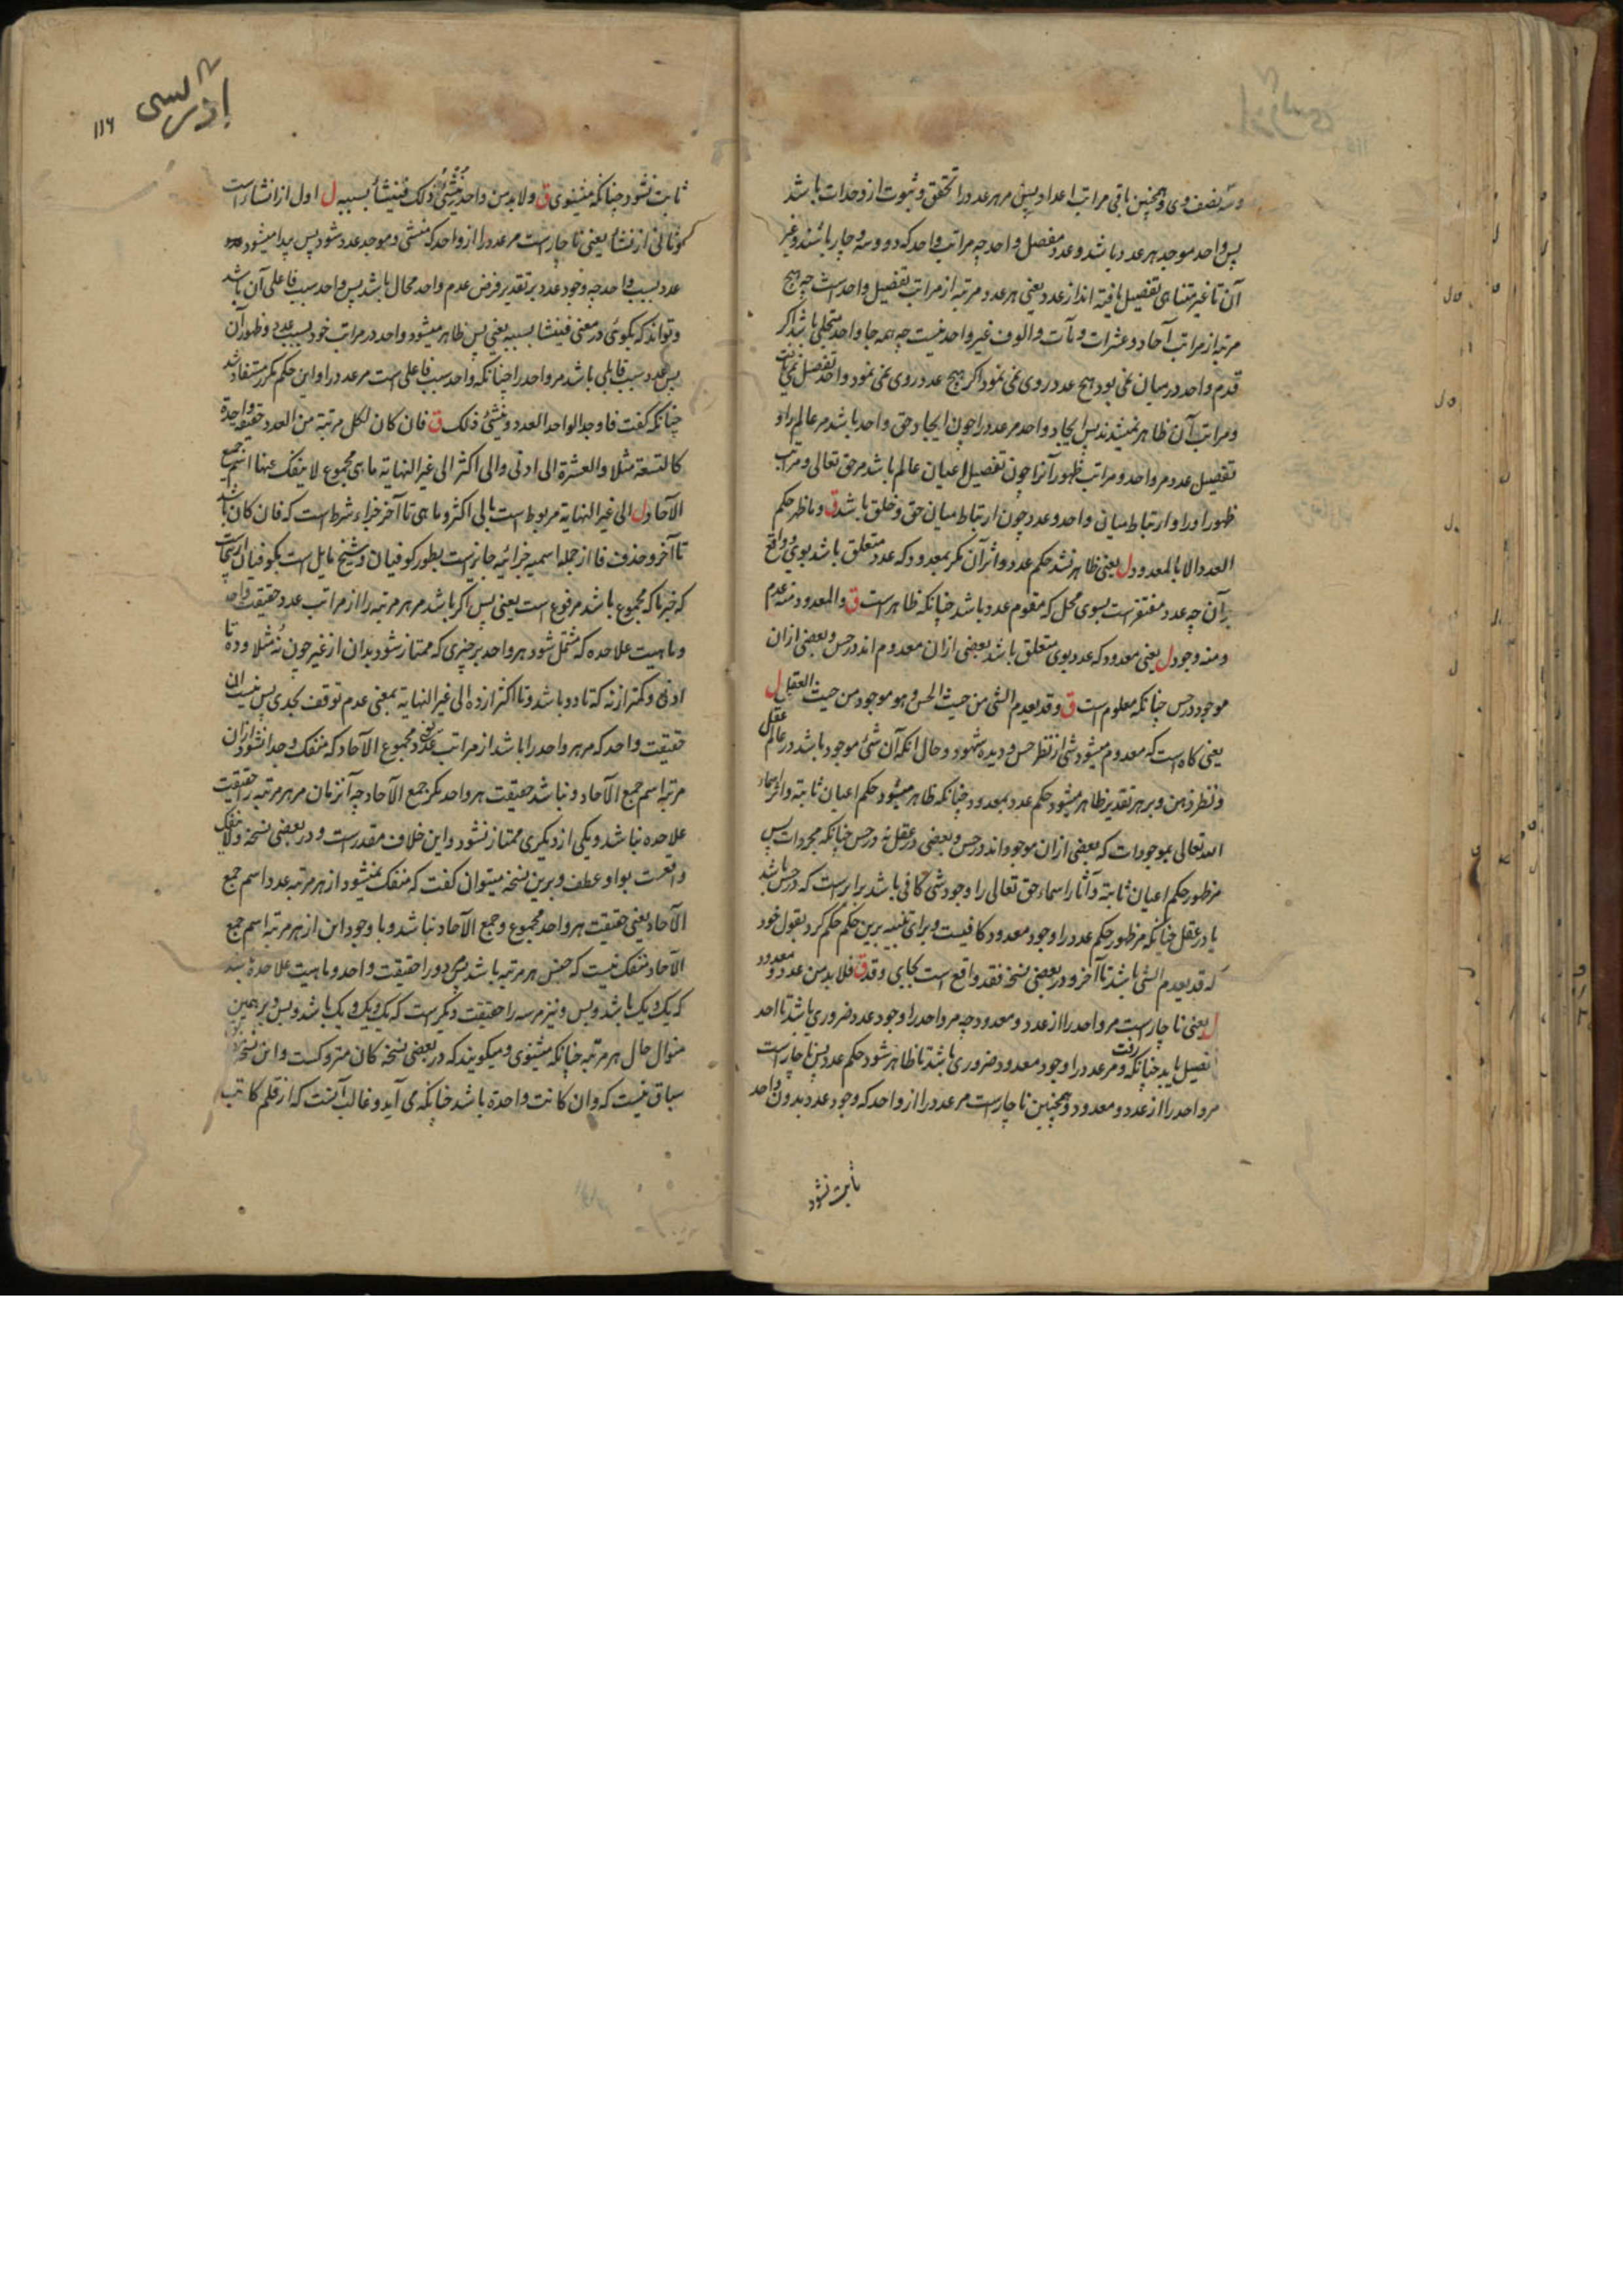 و سه نصف وی و همچنین باقی مراتب اعداد پس مر هر عدد را تحقق و ثبوت از وحدات باشد
پس واحد موجد هر عدد باشد و عدد مفصل واحد چه مراتب واحد که دو و سه و چار باشند و غیر
آن تا غیر متناهی تفصیل یافته اند از عدد یعنی هر عدد و مرتبه از مراتب تفصیل واحد است چه هیچ
مرتبه از مراتب آحاد و عشرات و مآت و الوف غیر واحد نیست چه همه جا واحد متجلی باشد اگر
قدم واحد در میان نمی بود هیچ عدد روی نمی نمود اگر هیچ عدد روی نمی نمود واحد تفصیل نمی یافت
و مراتب آن ظاهر نمیشدند پس ایجاد واحد مر عدد را چون ایجاد حق واحد باشد مر عالم را و
تفصیل عدد مر واحد و مراتب ظهور آنرا چون تفصیل اعیان عالم باشد مر حق تعالی و مراتب
ظهور او را و ارتباط میان واحد و عدد چون ارتباط میان حق و خلق باشد ق و ما ظهر حکم
العدد الا بالمعدود ل یعنی ظاهر نشد حکم عدد و اثر آن مگر بمعدود که عدد متعلق باشد بوی و واقع
بر آن چه عدد مفتقرست بسوی محل که مقوم عدد باشد چنانکه ظاهر است ق و المعدود منه عدم
و منه وجود ل یعنی معدود که عدد بوی متعلق باشد بعضی ازان معدوم اند در حس و بعضی ازان
موجود در حس چنانکه معلوم است ق و قد یعدم الشی من حیث الحس و هو موجود من حیث العقل ل
یعنی گاه است که معدوم میشود شی از نظر حس و دیده شهود و حال آنکه آن شئ موجود باشد در عالم عقل
و نظر ذهن و بر هر تقدیر ظاهر میشود حکم عدد بمعدود چنانکه ظاهر میشود حکم اعیان ثابته و اثر اسماء
الله تعالی بموجودات که بعضی ازان موجود اند در حس و بعضی در عقل نه در حس چنانکه مجردات پس
مر ظهور حکم اعیان ثابته و آثار اسماء حق تعالی را وجود شی کافی باشد برابر است که در حس باشد
یا در عقل چنانکه مر ظهور حکم عدد را وجود معدود کافیست و برای تنبیه برین حکم حکم کرد بقول خود
که قد یعدم الشی باشد تا آخر و در بعضی نسخ فقد واقع است بجای و قد ق فلا بد من عدد و معدود
ل یعنی ناچارست مر واحد را از عدد و معدود چه مر واحد را وجود عدد ضروری باشد تا احد
تفصیل یابد چنانکه رفت و مر عدد را وجود معدود ضروری باشد تا ظاهر شود حکم عدد پس ناچار است
مر واحد را از عدد و معدود و همچنین ناچارست مر عدد را از واحد که وجود عدد بدون واحد
ثابت نشود
ادریسی
۱۱۶
ثابت نشود چنانکه میشنوی ق و لا بد من واحد ینشئ ذلک فینشأ بسببه ل اول از انشا است
و ثانی از نشأ یعنی ناچارست مر عدد را از واحد که منشی و موجد عدد شود پس پیدا میشود
عدد بسبب واحد چه وجود عدد بر تقدیر فرض عدم واحد محال باشد پس واحد سبب فاعلی آن باشد
و تواند که بگوئی در معنی فینشأ بسببه یعنی پس ظاهر میشود واحد در مراتب خود بسبب عدد و ظهور آن
پس عدد سبب قابلی باشد مر واحد را چنانکه واحد سبب فاعلی است مر عدد را و این حکم مکرر مستفاد شد
چنانکه گفت فاوجد الواحد العدد و ینشئ ذلک ق فان کان لکل مرتبة من العدد حقیقة واحدة
کالتسعة مثلا و العشرة الی ادنی و الی اکثر الی غیر النهایة ما هی مجموع لا ینفک عنها اسم جمع
الآحاد ل الی غیر النهایة مربوط است بالی اکثر و ما هی تا آخر جزاء شرط است که فان کان باشد
تا آخر و حذف فا از جمله اسمیه جزائیه جایز است بطور کوفیان و شیخ مایل است بکوفیان
که خبر ما که مجموع باشد مرفوع است یعنی پس اگر باشد مر هر مرتبه را از مراتب عدد حقیقت واحد
و ماهیت علاحده که مشتمل شود هر واحد بر چیزی که ممتاز شود بدان از غیر چون نُه مثلا و ده تا
ادنی و کمتر از نه که تا دو باشد و تا اکثر از ده الی غیر النهایة بمعنی عدم توقف بحدی پس نیست آن
حقیقت واحد که مر هر واحد را باشد از مراتب عددی مجموع الآحاد که منفک و جدا نشود ازان
مرتبه اسم جمع الآحاد و نباشد حقیقت هر واحد مگر جمع الآحاد چه آنزمان مر هر مرتبه را حقیقت
علاحده نباشد و یکی از دیگری ممتاز نشود و این خلاف مقدر است و در بعضی نسخه و لا ینفک
واقعست بواو عطف و برین نسخه میتوان گفت که منفک نمیشود از هر مرتبه عدد اسم جمع
الآحاد یعنی حقیقت هر واحد مجموع و جمع الآحاد نباشد و با وجود این از هر مرتبه اسم جمع
الآحاد منفک نیست که جنس هر مرتبه باشد پس دو را حقیقت واحد و ماهیت علاحده باشد
که یک و یک باشد و بس و نیز مر سه را حقیقت دیگر است که یک و یک و یک باشد و بس و بر همین
منوال حال هر مرتبه چنانکه میشنوی و میگویند که در بعضی نسخه کان متروکست و این نسخه
سباق نیست که و ان کانت واحدة باشد چنانکه می آید و غالب آنست که از قلم کاتب